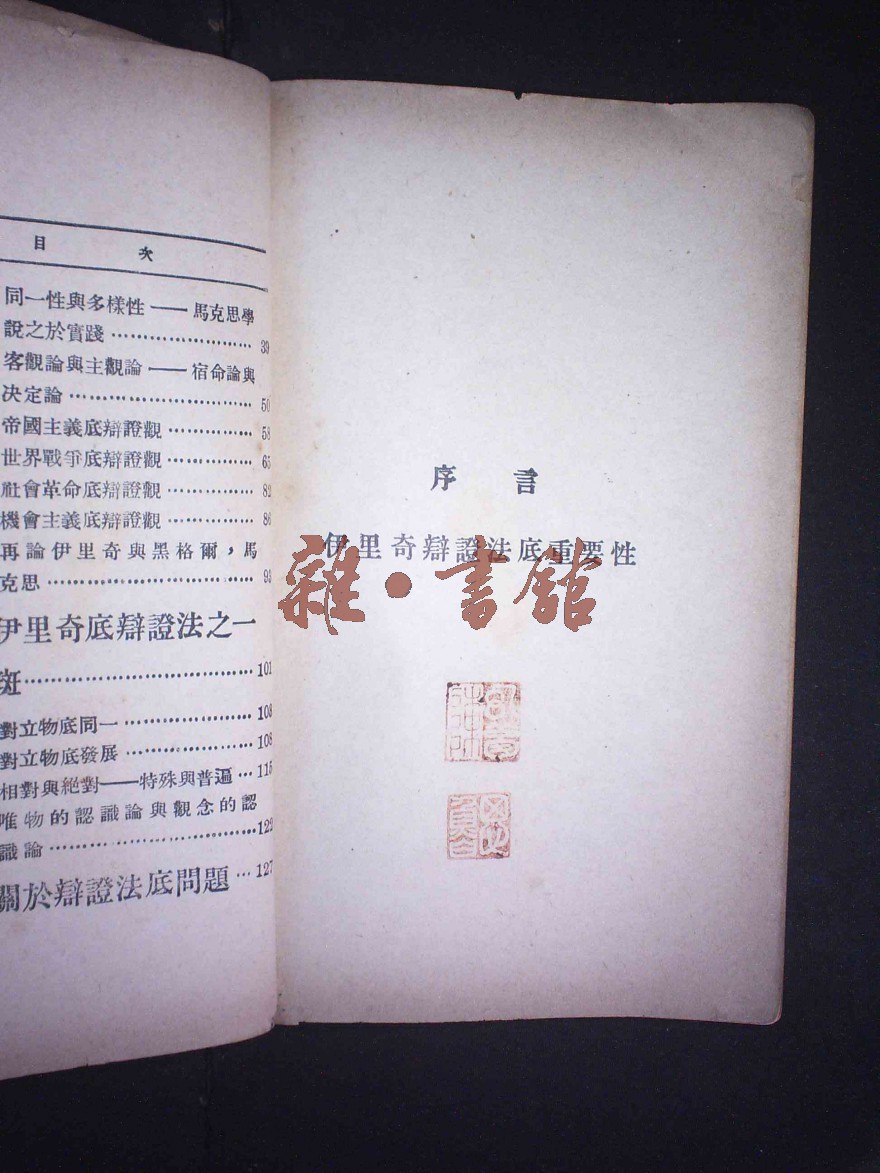 目 次
同一性與多樣性——馬克思學
說之於實踐……………………39
客觀論與主觀論——宿命論與
决定論…………………………50
帝國主義底辯證觀……………58
世界戰爭底辯證觀……………65
社會革命底辯證觀……………82
機會主義底辯證觀……………86
再論伊里奇與黑格爾，馬
克思……………………………93
伊里奇底辯證法之一
斑………………………………101
對立物底同一…………………108
對立物底發展…………………108
相對與絕對——特殊與普遍…115
唯物的認識論與觀念的認
識論……………………………122
關於辯證法底問題…127
序言
伊里奇辯證法底重要性
雜·書館